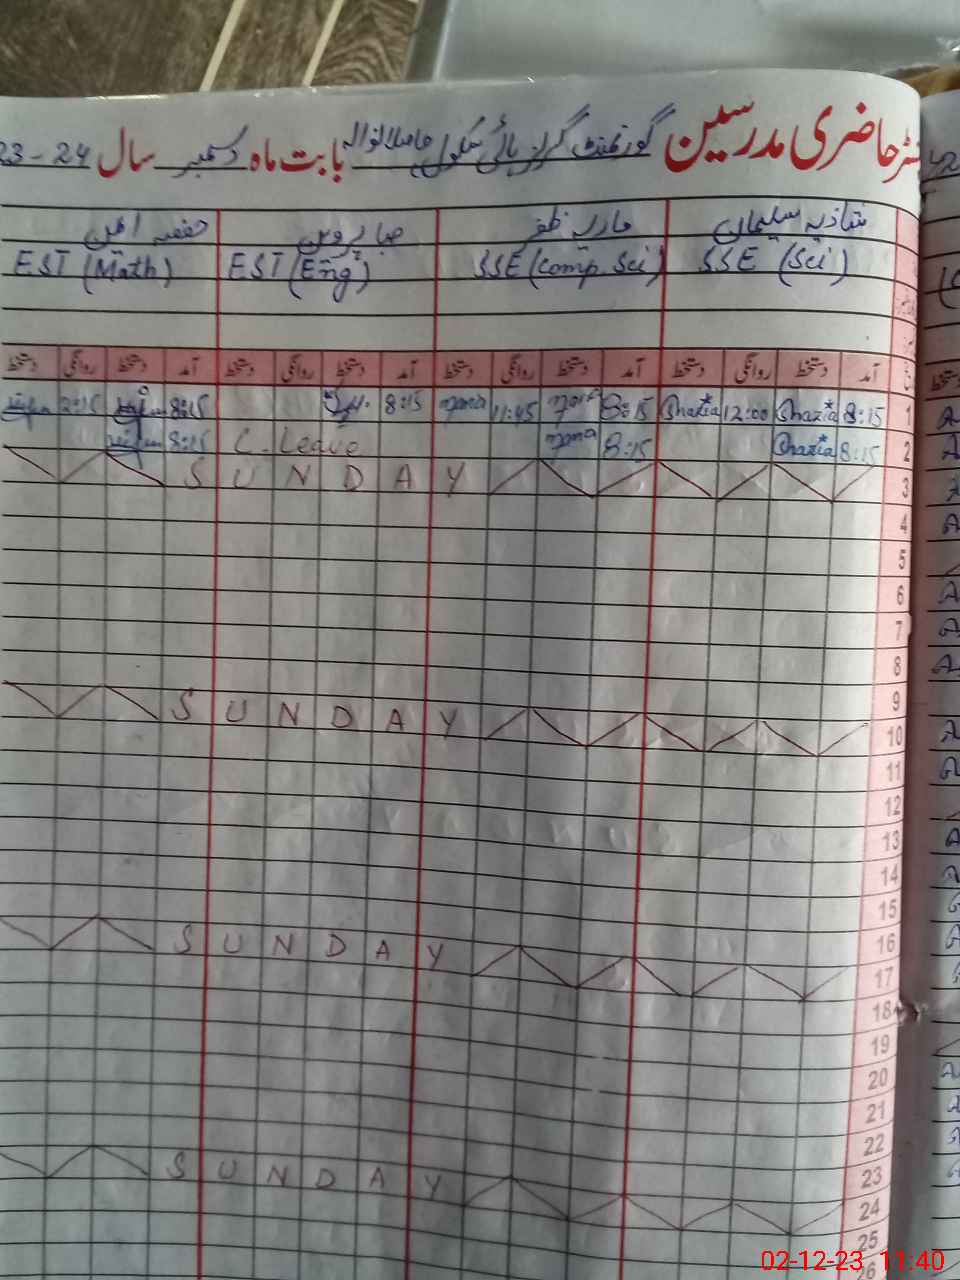 رجسٹر حاضری مدرسین گورنمنٹ گرلز ہائی سکول بابت ماہ دسمبر سال 23-24
شازیہ سلیمان ماریہ ظفر صبا پروین حفصہ
SSE (Sci) SSE (Comp. Sci) EST (Eng) EST (Math)
آمد دستخط روانگی دستخط آمد دستخط روانگی دستخط آمد دستخط روانگی دستخط آمد دستخط روانگی دستخط
1 8:15 Shazia 12:00 Shazia 8:15 11:45 maria 8:15 8:15 2:15
2 8:15 Shazia 8:15 maria C. Leave 8:15
3 SUNDAY
4
5
6
7
8
9
10 SUNDAY
11
12
13
14
15
16
17 SUNDAY
18
19
20
21
22
23
24 SUNDAY
25
26
02-12-23 11:40